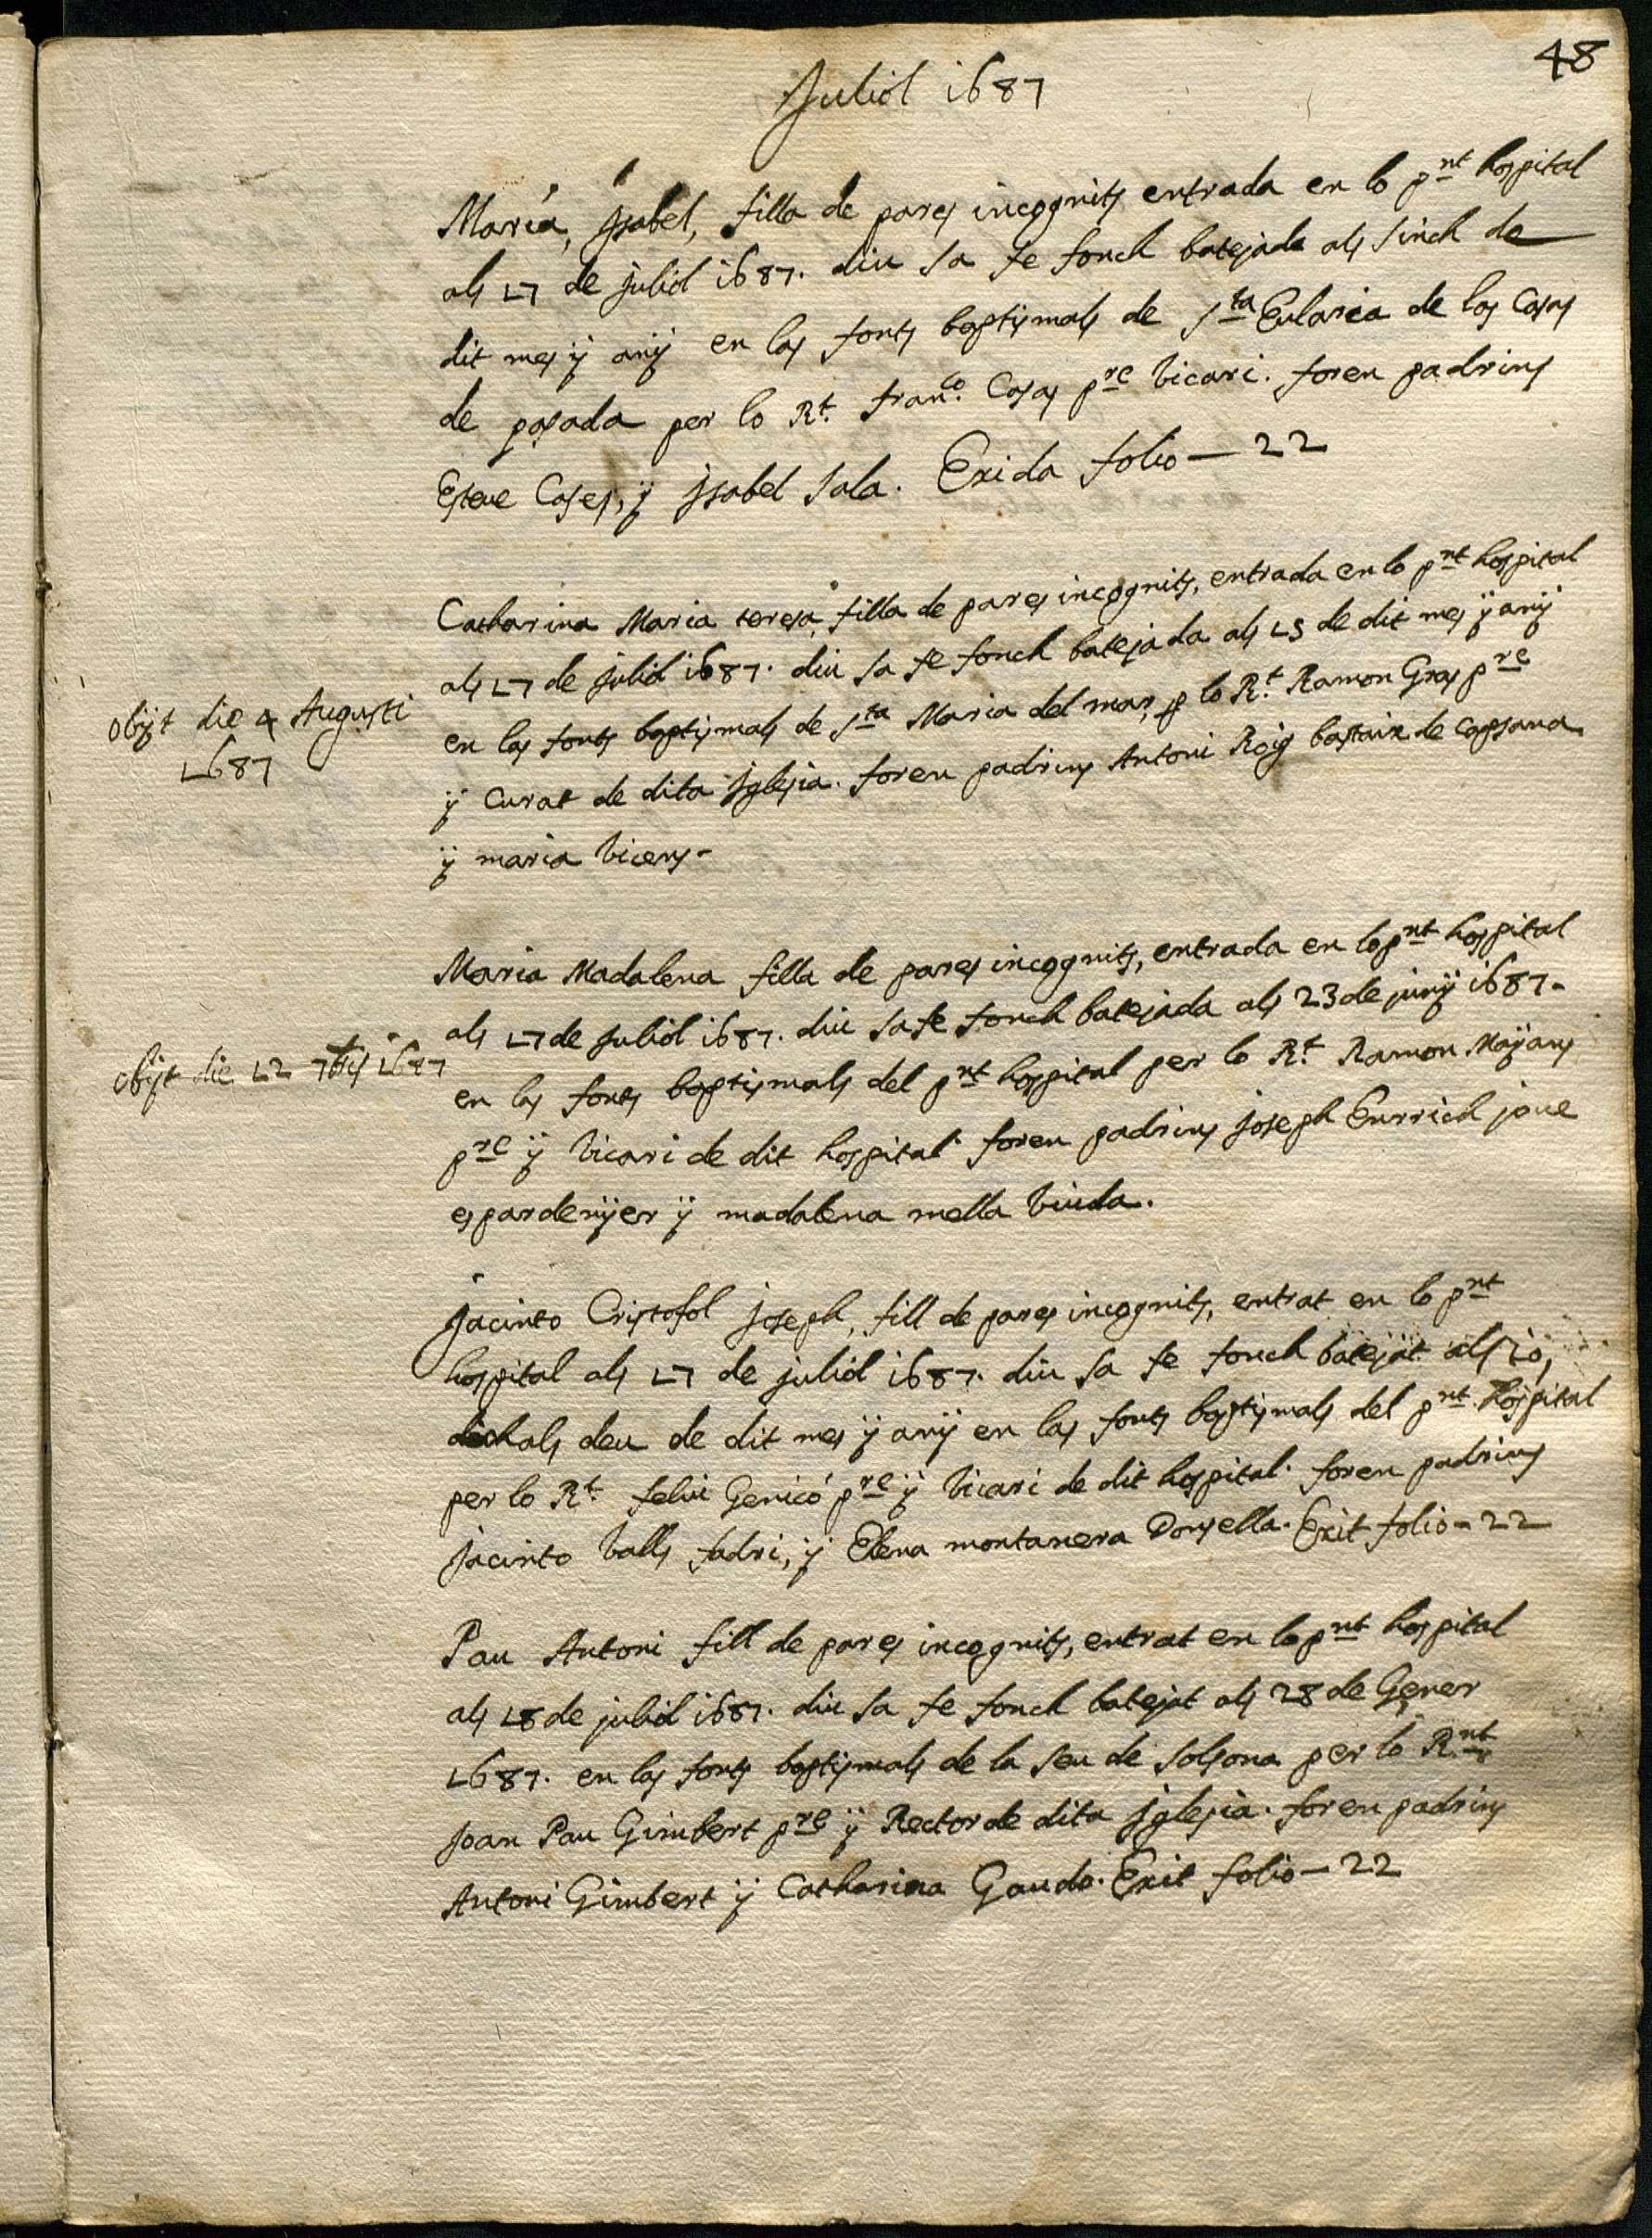 48
Juliol 1687
Maria, Isabel, filla de pares incognits entrada en lo pnt hospital
als 17 de juliol 1687. diu sa fe fonch batejada als sinch de
dit mes ÿ anÿ en las fonts baptismals de Sta Eularia de las Casas
de posada per lo Rt. Franco. Casas pre Vicari. foren padrins
Esteve Cases, ÿ Isabel Sala. Exida folio — 22
Catharina Maria teresa, filla de pares incognits, entrada en lo pnt hospital
als 17 de juliol 1687. diu sa fe fonch batejada als 15 de dit mes ÿ anÿ
en las fonts baptismals de Sta Maria del mar, p lo Rt. Ramon Gras pre
ÿ Curat de dita Iglesia. foren padrins Antoni Roig bastaix de Capsana
ÿ maria Vicens-
obijt die 4 Augusti
1687
Maria Madalena filla de pares incognits, entrada en lo pnt hospital
als 17 de Juliol 1687. diu sa fe fonch batejada als 23 de junÿ 1687.
en las fonts baptismals del pnt hospital per lo Rt. Ramon Maÿans
pre ÿ Vicari de dit hospital. foren padrins joseph Enrrich jove
espardenÿer ÿ madalena mella Viuda.
obijt die 12 7bris 1687
Jacinto Cristofol joseph, fill de pares incognits, entrat en lo pnt
hospital als 17 de juliol 1687. diu sa fe fonch batejat als 10,
dich als deu de dit mes ÿ anÿ en las fonts baptismals del pnt hospital
per lo Rt. feliu Genicó pre ÿ Vicari de dit hospital. foren padrins
Jacinto Valls fadri, ÿ Elena montanera Donsella. Exit folio - 22
Pau Antoni fill de pares incognits, entrat en lo pnt hospital
als 18 de juliol 1687. diu sa fe fonch batejat als 28 de Gener
1687. en las fonts baptismals de la seu de Solsona per lo Rnt
Joan Pau Gimbert pre ÿ Rector de dita Iglesia. foren padrins
Antoni Gimbert ÿ Catharina Gaudo. Exit folio — 22